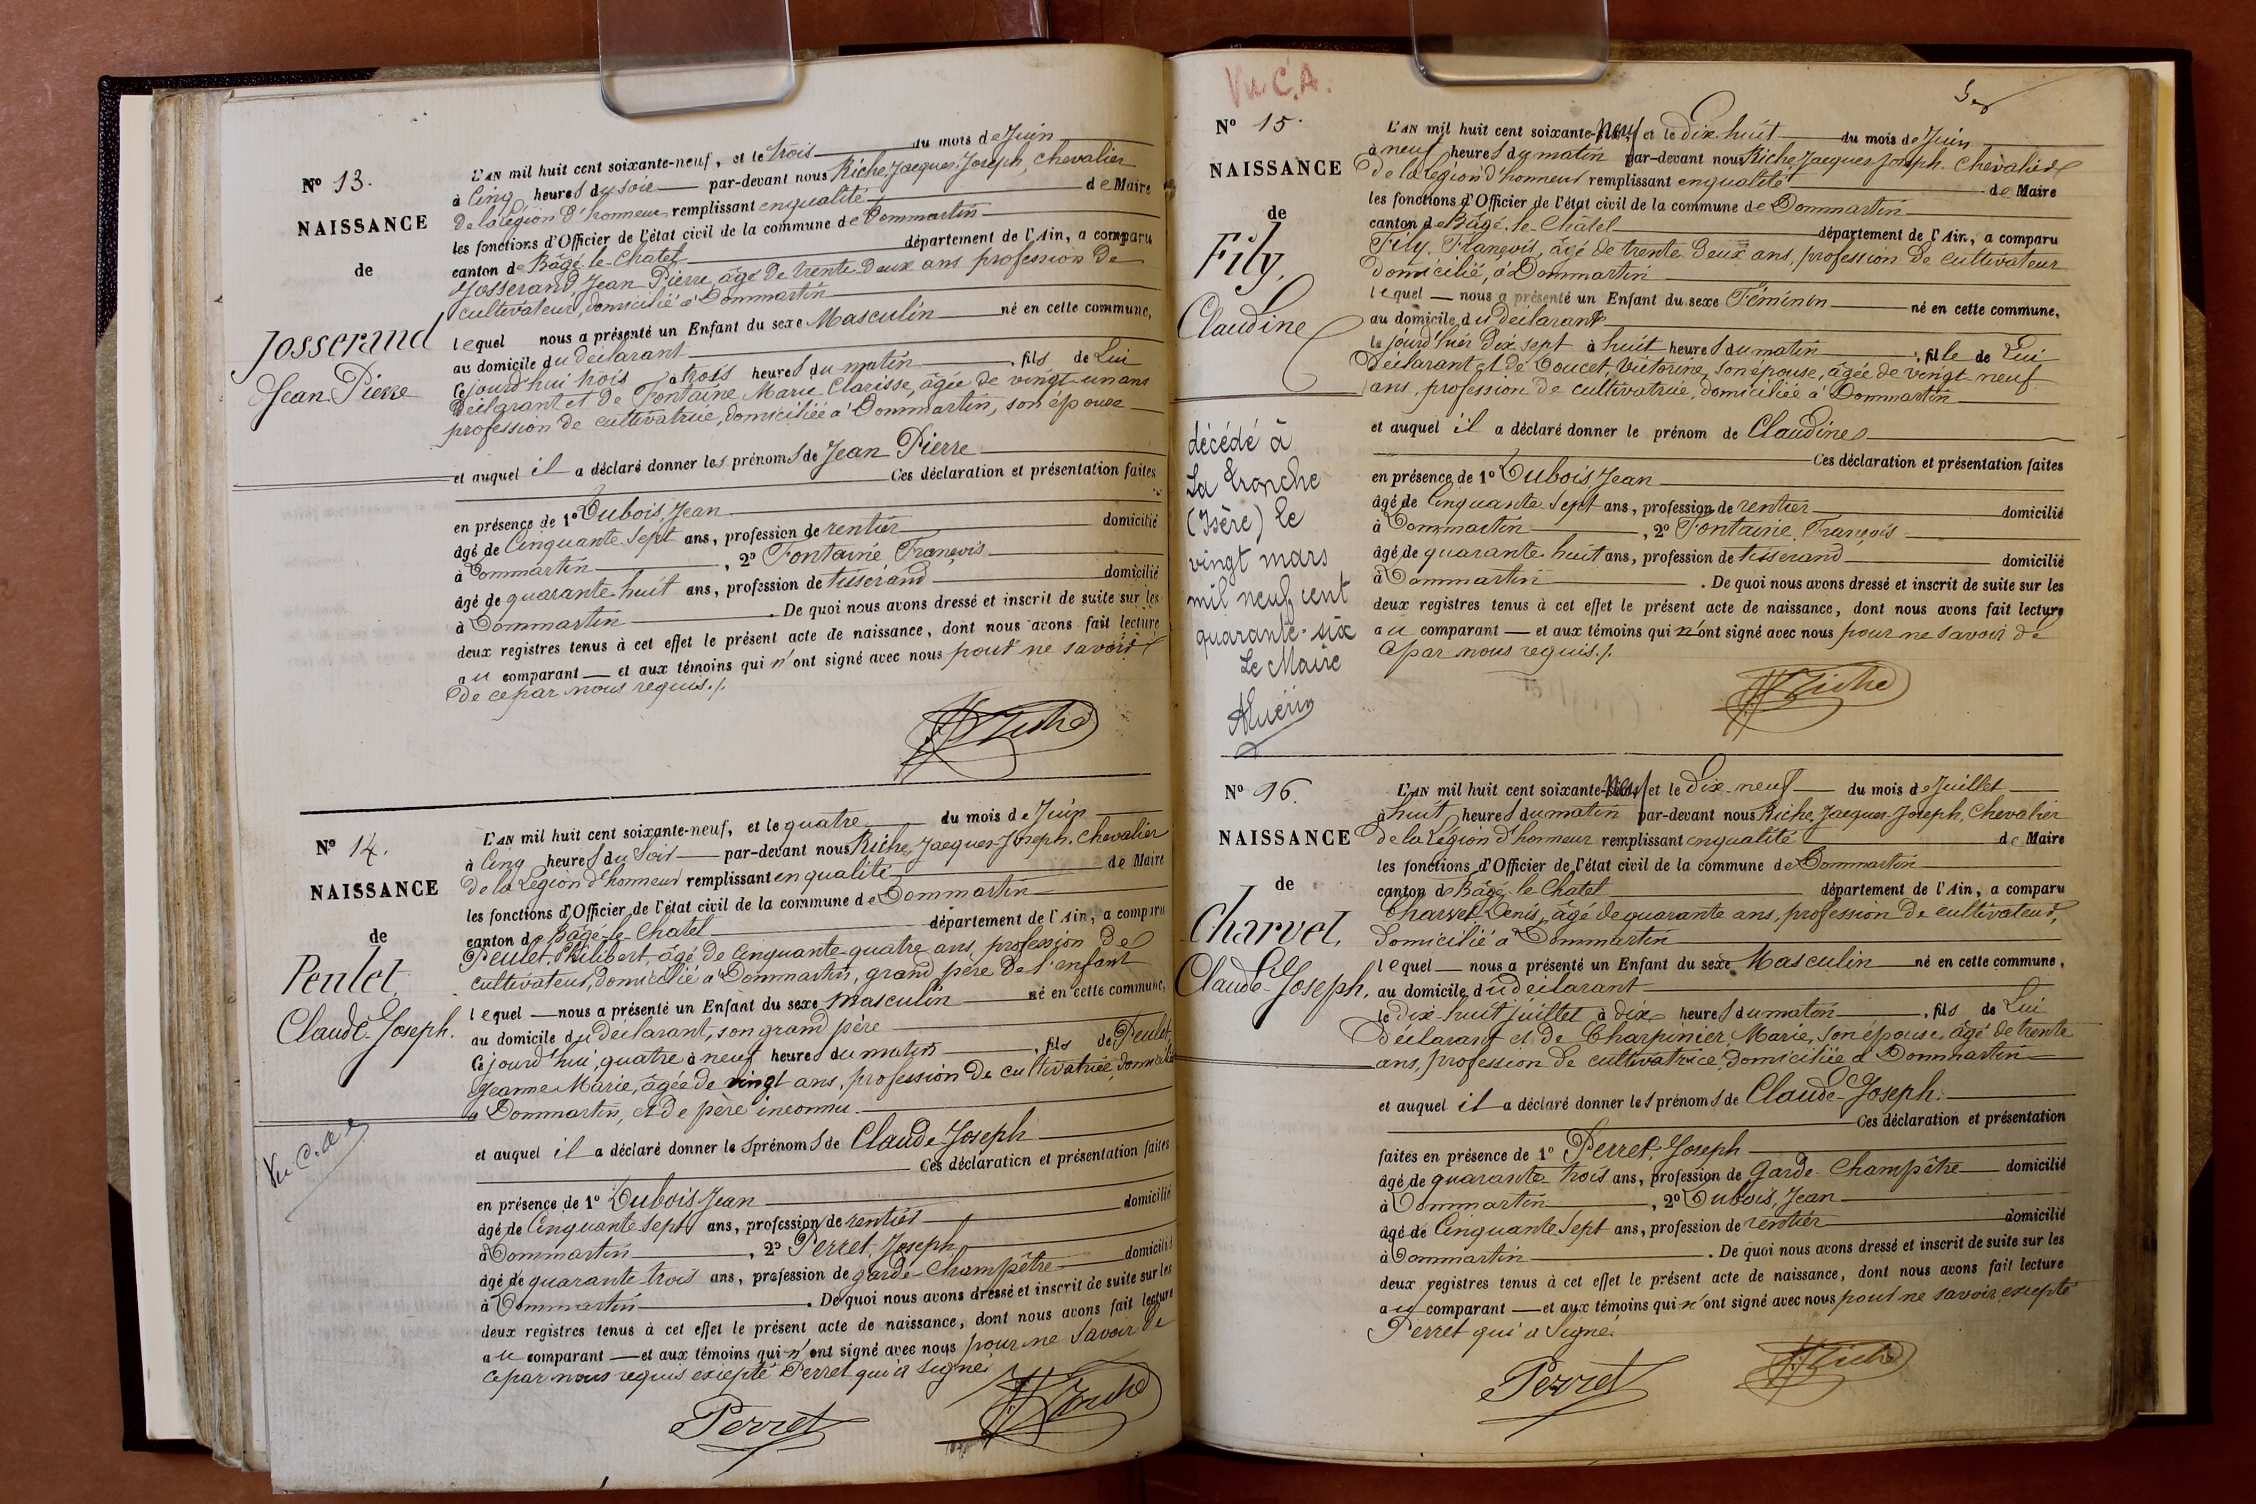 Nº 13.
NAISSANCE
de
Josserand
Jean Pierre
L'AN mil huit cent soixante-neuf, et le trois du mois de Juin
à Cinq heures du soir par-devant nous Riche, Jacques Joseph, chevalier
De la légion d'honneur remplissant en qualité de Maire
les fonctions d'Officier de l'état civil de la commune de Dommartin
canton de Bâgé-le-Chatel département de l'Ain, a comparu
Josserand, Jean Pierre, âgé de trente deux ans profession de
cultivateur, domicilié à Dommartin
lequel nous a présenté un Enfant du sexe Masculin né en cette commune,
au domicile du déclarant
Cejourd'hui trois à trois heures du matin, fils de Lui
Déclarant et de Fontaine Marie Clarisse, âgée de vingt-un ans
profession de cultivatrice, domiciliée à Dommartin, son épouse
et auquel il a déclaré donner les prénoms de Jean Pierre
Ces déclaration et présentation faites
en présence de 1º Dubois Jean
âgé de Cinquante Sept ans, profession de rentier domicilié
à Dommartin, 2º Fontaine François
âgé de quarante-huit ans, profession de tisserand domicilié
à Dommartin. De quoi nous avons dressé et inscrit de suite sur les
deux registres tenus à cet effet le présent acte de naissance, dont nous avons fait lecture
au comparant et aux témoins qui n'ont signé avec nous pour ne savoir
De ce par nous requis./.
Riche
Nº 14.
NAISSANCE
de
Peulet
Claude-Joseph.
Vu C.A.
L'AN mil huit cent soixante-neuf, et le quatre du mois de Juin
à Cinq heures du Soir par-devant nous Riche, Jacques-Joseph. chevalier
De la Légion d'honneur remplissant en qualité de Maire
les fonctions d'Officier de l'état civil de la commune de Dommartin
canton de Bâgé-le-Chatel département de l'Ain, a comparu
Peulet. Philibert, âgé de Cinquante-quatre ans, profession de
cultivateur, domicilié à Dommartin, grand père de l'enfant
lequel nous a présenté un Enfant du sexe masculin né en cette commune,
au domicile du déclarant, son grand père
Cejourd'hui, quatre à neuf heures du matin, fils de Peulet,
Jeanne Marie, âgée de vingt ans, profession de cultivatrice, domiciliée
a Dommartin, et de père inconnu.
et auquel il a déclaré donner les prénoms de Claude Joseph
Ces déclaration et présentation faites
en présence de 1º Dubois Jean
âgé de Cinquante Sept ans, profession de rentier domicilié
à Dommartin, 2º Perret, Joseph
âgé de quarante trois ans, profession de garde-Champêtre domicilié
à Dommartin. De quoi nous avons dressé et inscrit de suite sur les
deux registres tenus à cet effet le présent acte de naissance, dont nous avons fait lecture
au comparant et aux témoins qui n'ont signé avec nous pour ne Savoir de
ce par nous requis excepté Perret qui a signé
Perret Riche
Vu C.A.
Nº 15.
NAISSANCE
de
Fily,
Claudine
décédé à
La Tronche
(Isère) le
vingt mars
mil neuf cent
quarante-six
Le Maire
L'AN mil huit cent soixante-neuf et le Dix-huit du mois de Juin
à neuf heures du matin par-devant nous Riche, Jacques Joseph. Chevalier
De la légion d'honneur remplissant en qualité de Maire
les fonctions d'Officier de l'état civil de la commune de Dommartin
canton de Bâgé-le-Châtel département de l'Ain, a comparu
Fily, François, âgé de trente deux ans, profession de cultivateur
Domicilié, à Dommartin
lequel nous a présenté un Enfant du sexe Féminin né en cette commune,
au domicile du déclarant
le jourd'hier Dix sept à huit heures du matin, fille de Lui
Déclarant et de Doucet, Victorine, son épouse, âgée de vingt-neuf
ans, profession de cultivatrice, domiciliée à Dommartin
et auquel il a déclaré donner le prénom de Claudine
Ces déclaration et présentation faites
en présence de 1º Dubois Jean
âgé de Cinquante Sept ans, profession de rentier domicilié
à Dommartin, 2º Fontaine, François
âgé de quarante-huit ans, profession de tisserand domicilié
à Dommartin. De quoi nous avons dressé et inscrit de suite sur les
deux registres tenus à cet effet le présent acte de naissance, dont nous avons fait lecture
au comparant et aux témoins qui n'ont signé avec nous pour ne savoir de
ce par nous requis./.
Riche
Nº 16.
NAISSANCE
de
Charvet,
Claude-Joseph.
L'AN mil huit cent soixante-neuf et le Dix-neuf du mois de Juillet
à huit heures du matin par-devant nous Riche, Jacques-Joseph, Chevalier
de la Légion d'honneur remplissant en qualité de Maire
les fonctions d'Officier de l'état civil de la commune de Dommartin
canton de Bâgé-le-Chatel département de l'Ain, a comparu
Charvet Denis, âgé de quarante ans, profession de cultivateur,
Domicilié à Dommartin
lequel nous a présenté un Enfant du sexe Masculin né en cette commune,
au domicile du déclarant
le dix-huit juillet à dix heures du matin, fils de Lui
Déclarant et de Charpinier Marie, son épouse, âgé de trente
ans, profession de cultivatrice, Domiciliée à Dommartin
et auquel il a déclaré donner les prénoms de Claude-Joseph.
Ces déclaration et présentation
faites en présence de 1º Perret, Joseph
âgé de quarante-trois ans, profession de Garde-Champêtre domicilié
à Dommartin, 2º Dubois, Jean
âgé de Cinquante Sept ans, profession de rentier domicilié
à Dommartin. De quoi nous avons dressé et inscrit de suite sur les
deux registres tenus à cet effet le présent acte de naissance, dont nous avons fait lecture
au comparant et aux témoins qui n'ont signé avec nous pour ne savoir excepté
Perret qui a Signé.
Perret Riche